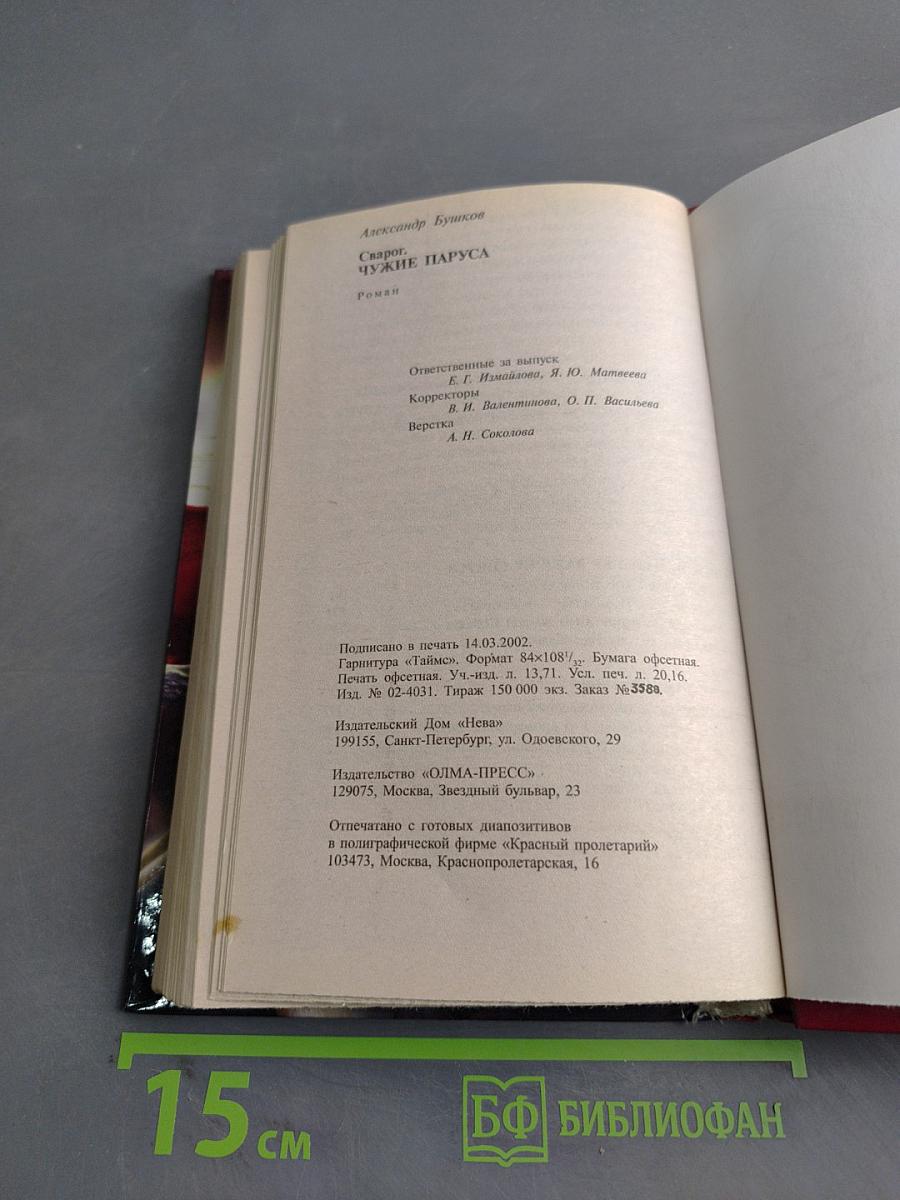 Александр Бушков
Сварог.
ЧУЖИЕ ПАРУСА
Роман
Ответственные за выпуск
Е. Г. Измайлова, Я. Ю. Матвеева
Корректоры
В. И. Валентинова, О. П. Васильева
Верстка
А. Н. Соколова
Подписано в печать 14.03.2002.
Гарнитура «Таймс». Формат 84×108¹/₃₂. Бумага офсетная.
Печать офсетная. Уч.-изд. л. 13,71. Усл. печ. л. 20,16.
Изд. № 02-4031. Тираж 150 000 экз. Заказ №3588.
Издательский Дом «Нева»
199155, Санкт-Петербург, ул. Одоевского, 29
Издательство «ОЛМА-ПРЕСС»
129075, Москва, Звездный бульвар, 23
Отпечатано с готовых диапозитивов
в полиграфической фирме «Красный пролетарий»
103473, Москва, Краснопролетарская, 16
15 см
БФ БИБЛИОФАН